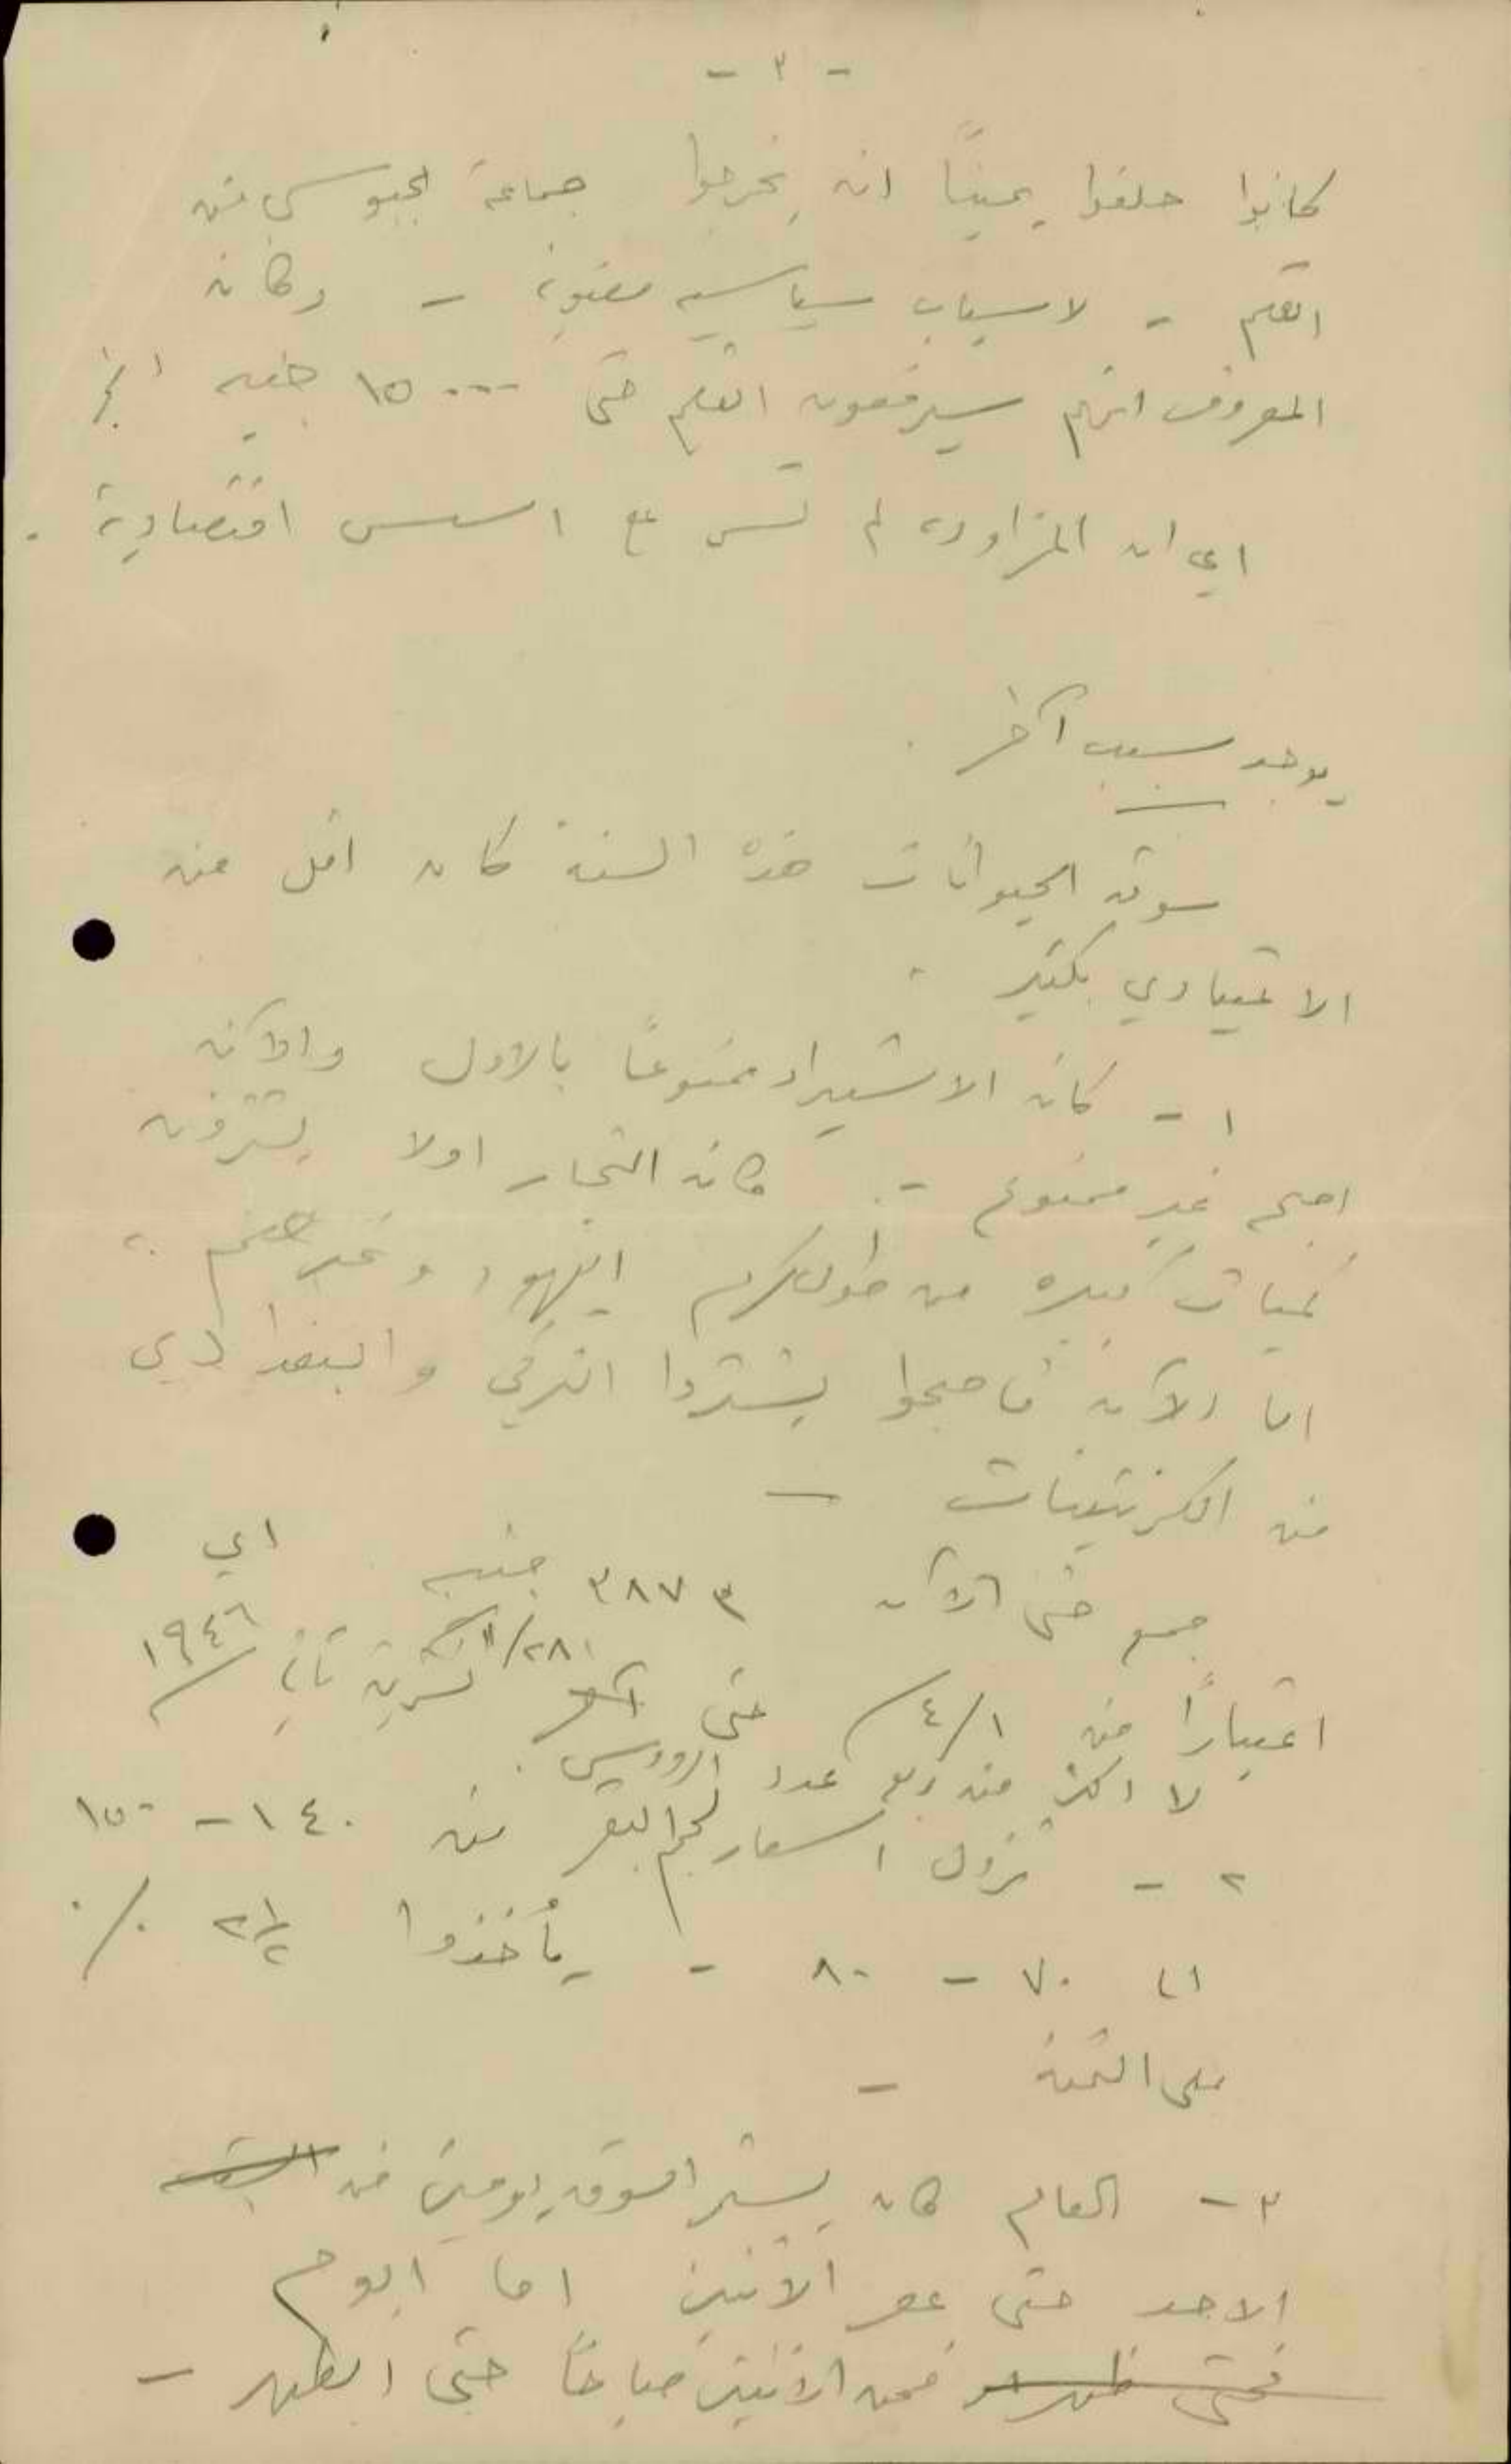 - ٣ -
كانوا حلفوا يميناً ان يخرجوا جماعة الجيوسي من
القلم - لاسباب سياسيه معنويه - وكان
المعروف انهم سيرفعون القلم حتى ١٥٠٠٠ جنيه الخ
اي ان المزاوده لم تسر على اسس اقتصادية .
يوجد سبب آخر .
سوق الحيوانات هذه السنة كان اقل من
الاعتيادي بكثير .
١ - كان الاستيراد ممنوعاً بالاول والآن
اصبح غير ممنوع - كان التجار اولا يشترون
كميات كبيره من طولكرم اليهود وغيرهم .
اما الآن فاصبحوا يشتروا التركي والبغدادي
من الكرنتينات -
جمع حتى الآن ٣٨٧٣ جنيه اي
اعتباراً من ٤/١ حتى ١١/٢٨ تشرين ثاني ١٩٤٦
لا اكثر من ربع عدد الرووس .
٢ - نزول اسعار لحم البقر من ١٤٠ - ١٥٠
الى ٧٠ - ٨٠ - يأخذوا ٢ ١/٢ ٪
على الثمن -
٣ - العام كان يستمر السوق يومين من
الاحد حتى عصر الاثنين اما اليوم
فحتى ظهر فمن الاثنين صباحاً حتى الظهر -